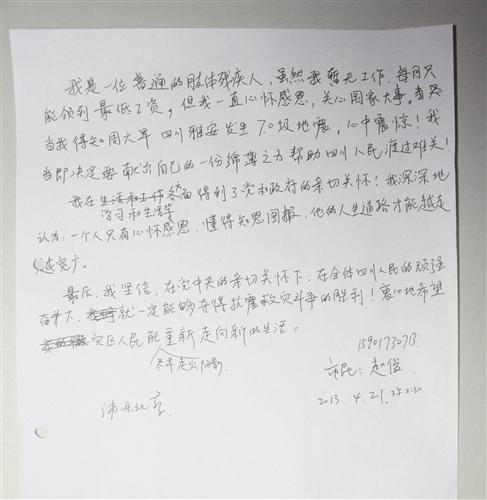 我是一位普通的肢体残疾人，虽然我暂无工作，每月只
能领到最低工资，但我一直心怀感恩，关心国家大事。当
当我得知周六早四川雅安发生7.0级地震，心中震惊！我
当即决定要献出自己的一份绵薄之力帮助四川人民渡过难关！
我在生活和工作等面得到了党和政府的亲切关怀！我深深地
学习和生活等
认为：一个人只有心怀感恩，懂得知恩图报，他的人生道路才能越走
越宽广。
最后，我坚信，在党中央的亲切关怀下，在全体四川人民的顽强
奋斗下，就一定能够夺得抗震救灾斗争的胜利！衷心地希望
灾区人民能重新走向新的生活。
尽早走出阴影
15901730713
市民：赵俊
浦东北京
2013.4.21.